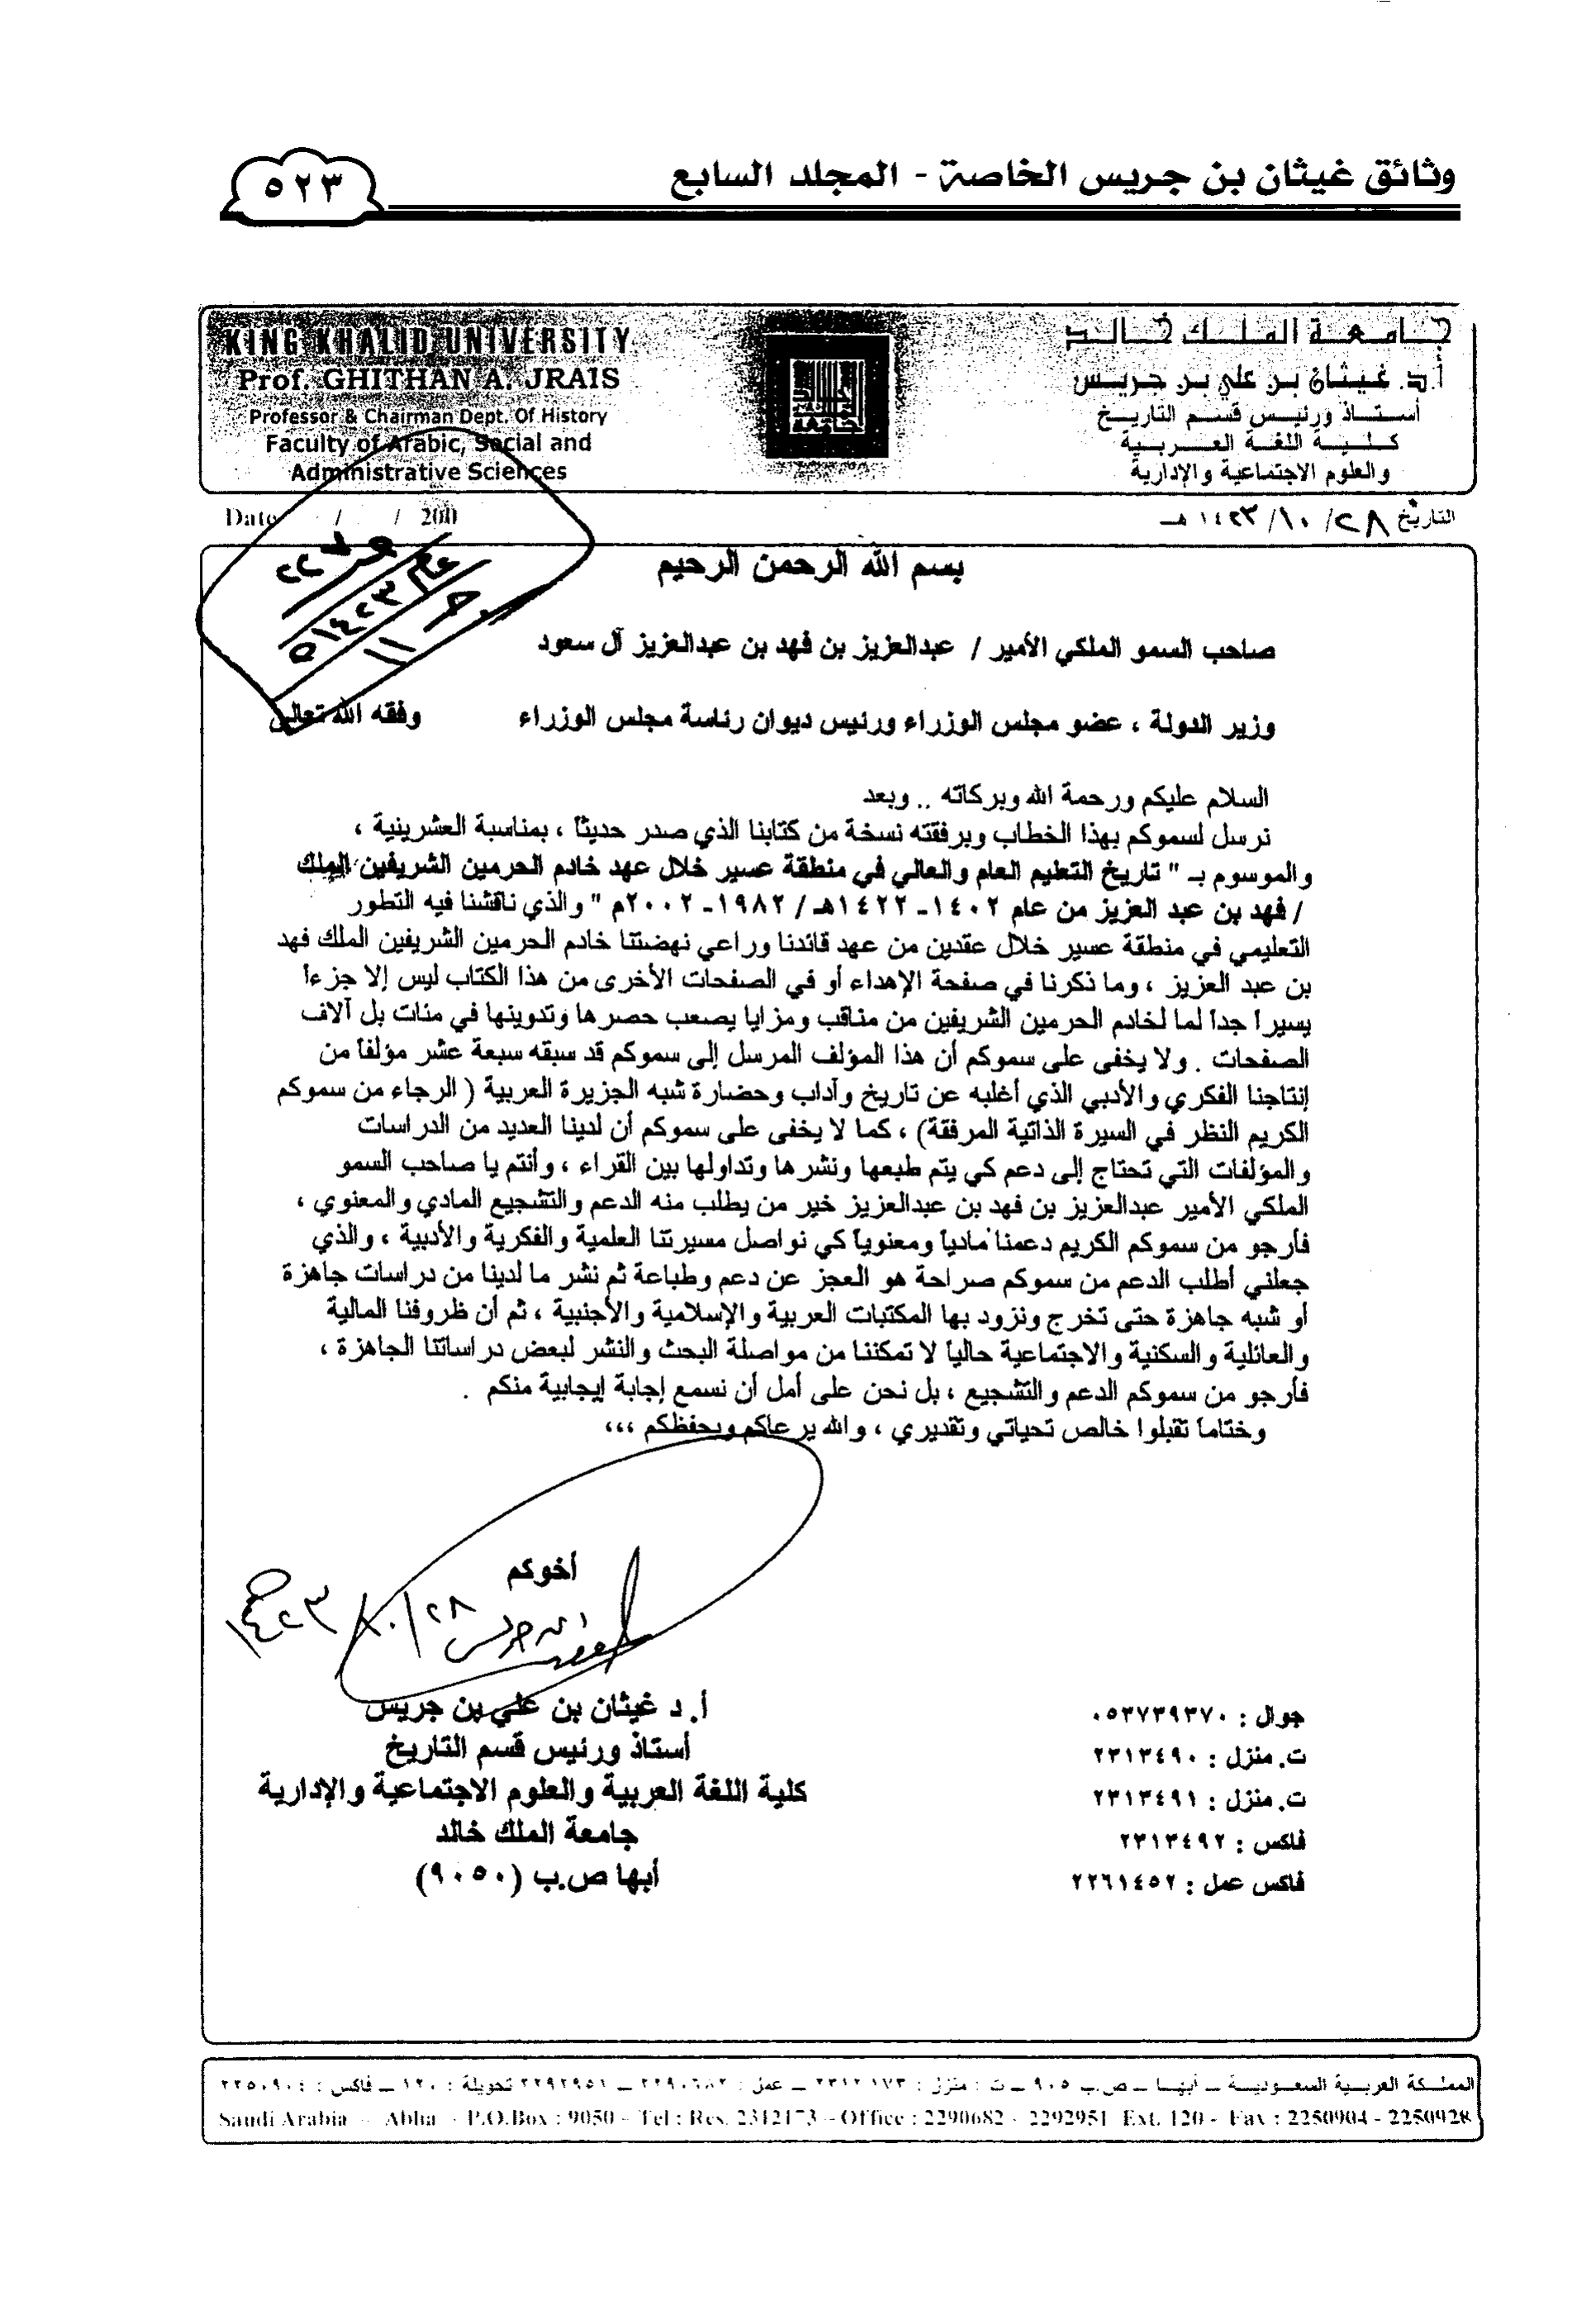 وثائق غيثان بن جريس الخاصة - المجلد السابع
٥٢٣
جامعة الملك خالد
أ.د. غيثان بن علي بن جريس
أستاذ ورئيس قسم التاريخ
كلية اللغة العربية
والعلوم الاجتماعية والإدارية
KING KHALID UNIVERSITY
Prof. GHITHAN A. JRAIS
Professor & Chairman Dept. Of History
Faculty of Arabic, Social and
Administrative Sciences
التاريخ ٢٨/ ١٠/ ١٤٢٣ هـ
Date / / 200
عام ١٤٢٣هـ
بسم الله الرحمن الرحيم
صاحب السمو الملكي الأمير / عبدالعزيز بن فهد بن عبدالعزيز آل سعود
وزير الدولة ، عضو مجلس الوزراء ورئيس ديوان رئاسة مجلس الوزراء وفقه الله تعالى
السلام عليكم ورحمة الله وبركاته .. وبعد
نرسل لسموكم بهذا الخطاب وبرفقته نسخة من كتابنا الذي صدر حديثاً ، بمناسبة العشرينية ،
والموسوم بـ " تاريخ التعليم العام والعالي في منطقة عسير خلال عهد خادم الحرمين الشريفين الملك
/ فهد بن عبد العزيز من عام ١٤٠٢- ١٤٢٢هـ / ١٩٨٢- ٢٠٠٢م " والذي ناقشنا فيه التطور
التعليمي في منطقة عسير خلال عقدين من عهد قائدنا وراعي نهضتنا خادم الحرمين الشريفين الملك فهد
بن عبد العزيز ، وما ذكرنا في صفحة الإهداء أو في الصفحات الأخرى من هذا الكتاب ليس إلا جزءاً
يسيراً جداً لما لخادم الحرمين الشريفين من مناقب ومزايا يصعب حصرها وتدوينها في مئات بل آلاف
الصفحات . ولا يخفى على سموكم أن هذا المؤلف المرسل إلى سموكم قد سبقه سبعة عشر مؤلفاً من
إنتاجنا الفكري والأدبي الذي أغلبه عن تاريخ وآداب وحضارة شبه الجزيرة العربية ( الرجاء من سموكم
الكريم النظر في السيرة الذاتية المرفقة) ، كما لا يخفى على سموكم أن لدينا العديد من الدراسات
والمؤلفات التي تحتاج إلى دعم كي يتم طبعها ونشرها وتداولها بين القراء ، وأنتم يا صاحب السمو
الملكي الأمير عبدالعزيز بن فهد بن عبدالعزيز خير من يطلب منه الدعم والتشجيع المادي والمعنوي ،
فأرجو من سموكم الكريم دعمنا مادياً ومعنوياً كي نواصل مسيرتنا العلمية والفكرية والأدبية ، والذي
جعلني أطلب الدعم من سموكم صراحة هو العجز عن دعم وطباعة ثم نشر ما لدينا من دراسات جاهزة
أو شبه جاهزة حتى تخرج ونزود بها المكتبات العربية والإسلامية والأجنبية ، ثم أن ظروفنا المالية
والعائلية والسكنية والاجتماعية حالياً لا تمكننا من مواصلة البحث والنشر لبعض دراساتنا الجاهزة ،
فأرجو من سموكم الدعم والتشجيع ، بل نحن على أمل أن نسمع إجابة إيجابية منكم .
وختاماً تقبلوا خالص تحياتي وتقديري ، والله يرعاكم ويحفظكم ،،،
أخوكم
٢٨/ ١٠/ ١٤٢٣هـ
أ. د غيثان بن علي بن جريس
أستاذ ورئيس قسم التاريخ
كلية اللغة العربية والعلوم الاجتماعية والإدارية
جامعة الملك خالد
أبها ص.ب (٩٠٥٠)
جوال : ٠٥٣٧٣٩٣٧٠
ت. منزل : ٢٣١٣٤٩٠
ت. منزل : ٢٣١٣٤٩١
فاكس : ٢٣١٣٤٩٢
فاكس عمل : ٢٢٦١٤٥٢
المملكة العربية السعودية ــ أبها ــ ص.ب ٩٠٥ ــ ت : منزل : ٢٣١٢١٧٣ ــ عمل : ٢٢٩٠٦٨٢ ــ ٢٢٩٢٩٥١ تحويلة : ١٢٠ ــ فاكس : ٢٢٥٠٩٠٤
Saudi Arabia - Abha - P.O.Box : 9050 - Tel : Res. 2312173 - Office : 2290682 - 2292951 Ext. 120 - Fax : 2250904 - 2250928